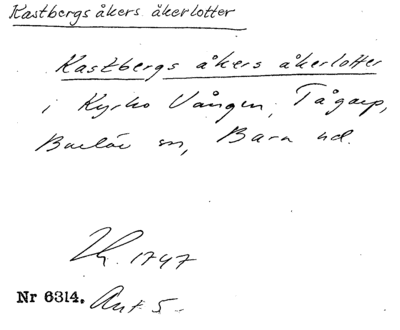 Kastbergs åkers åkerlotter
Kastbergs åkers åkerlotter
i Kyrko Vången, Tågarp,
Burlöv sn, Bara hd.
1747
Nr 6314. Ant. 5.